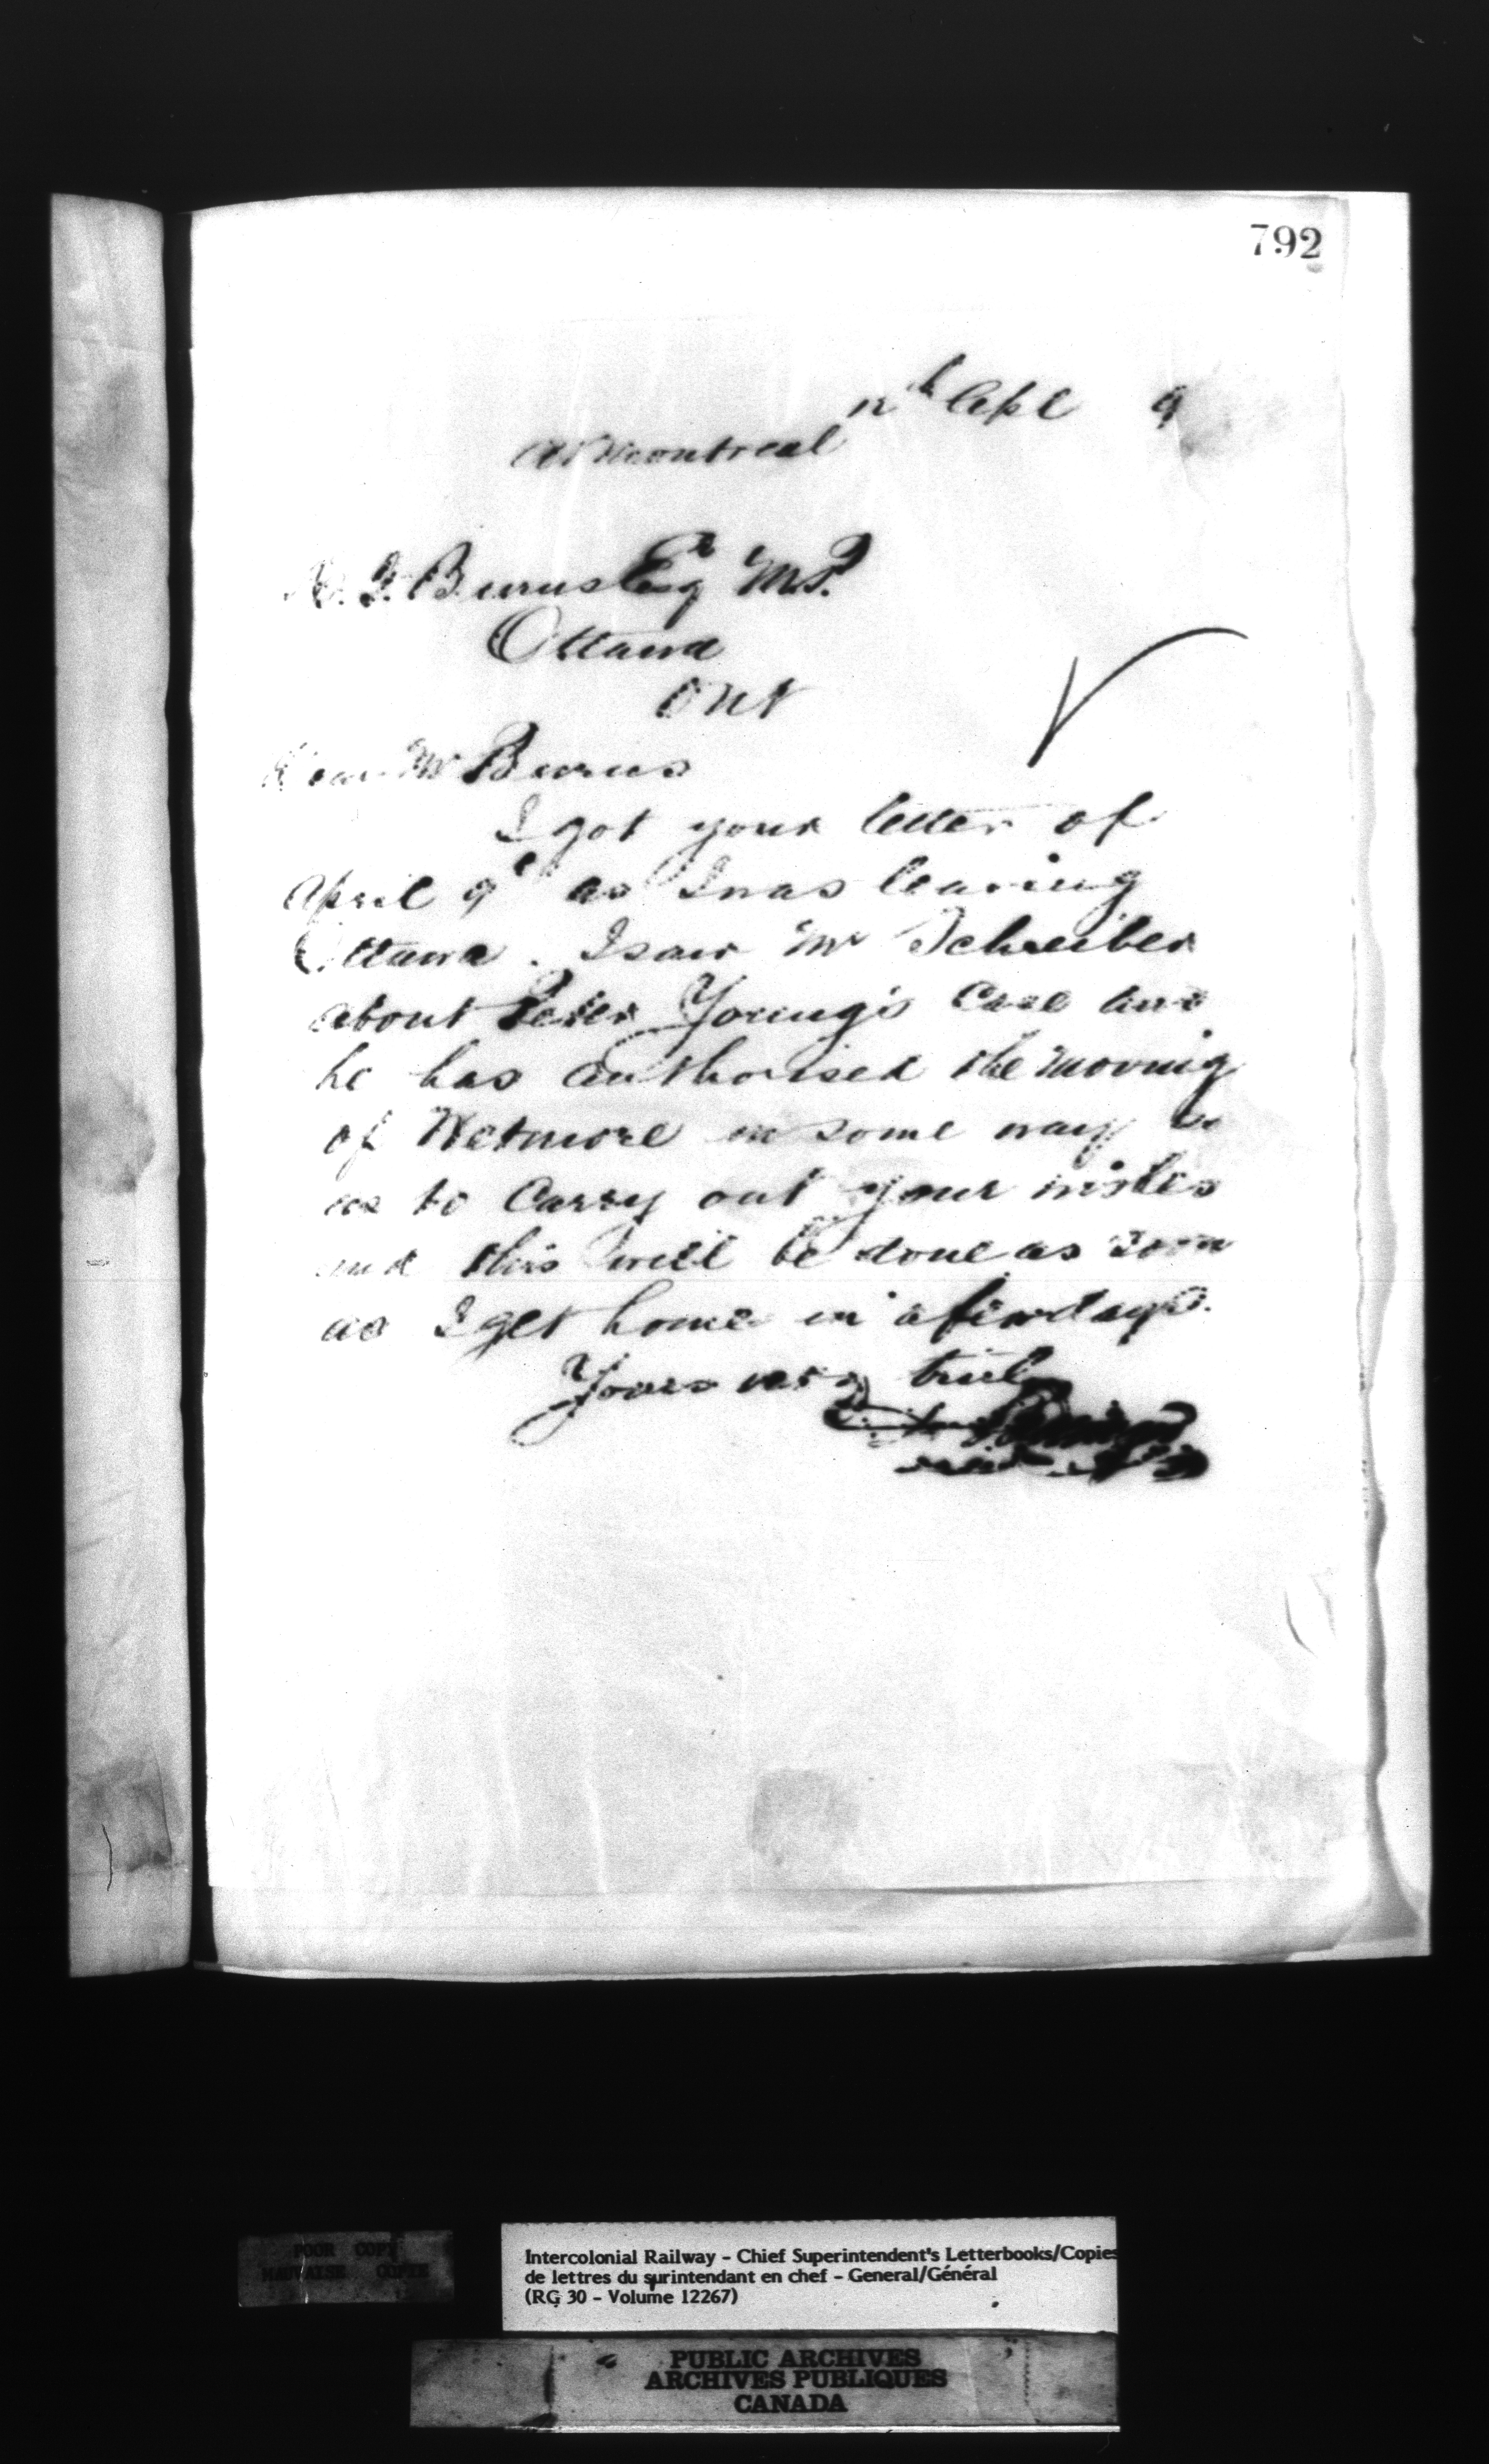 792
12th Apl 9
At Montreal
K. F. Burns Esq M.P.
Ottawa
Ont
Dear Mr Burns
I got your letter of
April 9th as I was leaving
Ottawa. I saw Mr Schreiber
about Peter Young's Case and
he has authorised the moving
of Wetmore in some way so
as to Carry out your wishes
and this will be done as soon
as I get home in a few days.
Yours very truly
POOR COPY
MAUVAISE COPIE
Intercolonial Railway - Chief Superintendent's Letterbooks/Copies
de lettres du surintendant en chef - General/Général
(RG 30 - Volume 12267)
PUBLIC ARCHIVES
ARCHIVES PUBLIQUES
CANADA